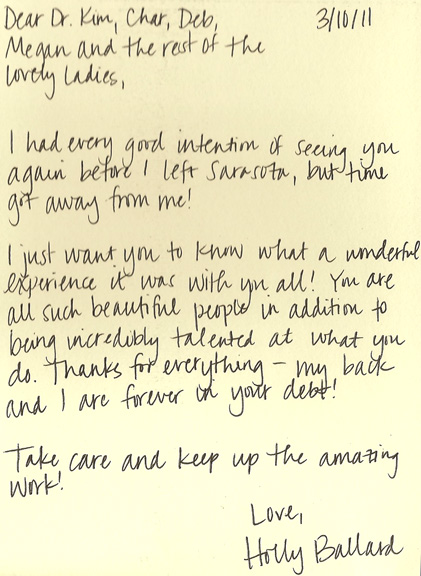 Dear Dr. Kim, Char, Deb, 3/10/11
Megan and the rest of the
lovely ladies,
I had every good intention of seeing you
again before I left Sarasota, but time
got away from me!
I just want you to know what a wonderful
experience it was with you all! You are
all such beautiful people in addition to
being incredibly talented at what you
do. Thanks for everything – my back
and I are forever in your debt!
Take care and keep up the amazing
work!
Love,
Holly Ballard